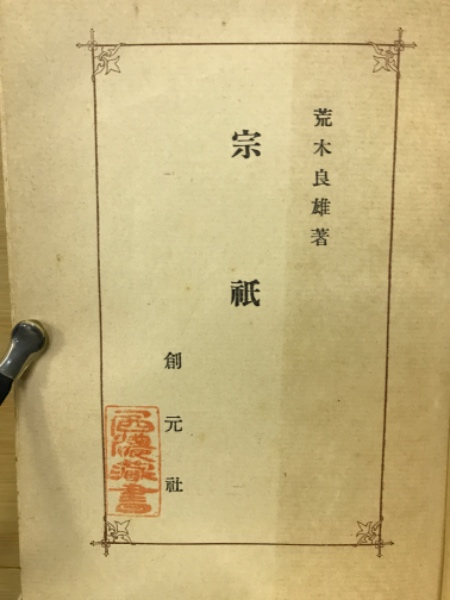 荒木良雄著
宗祇
創元社